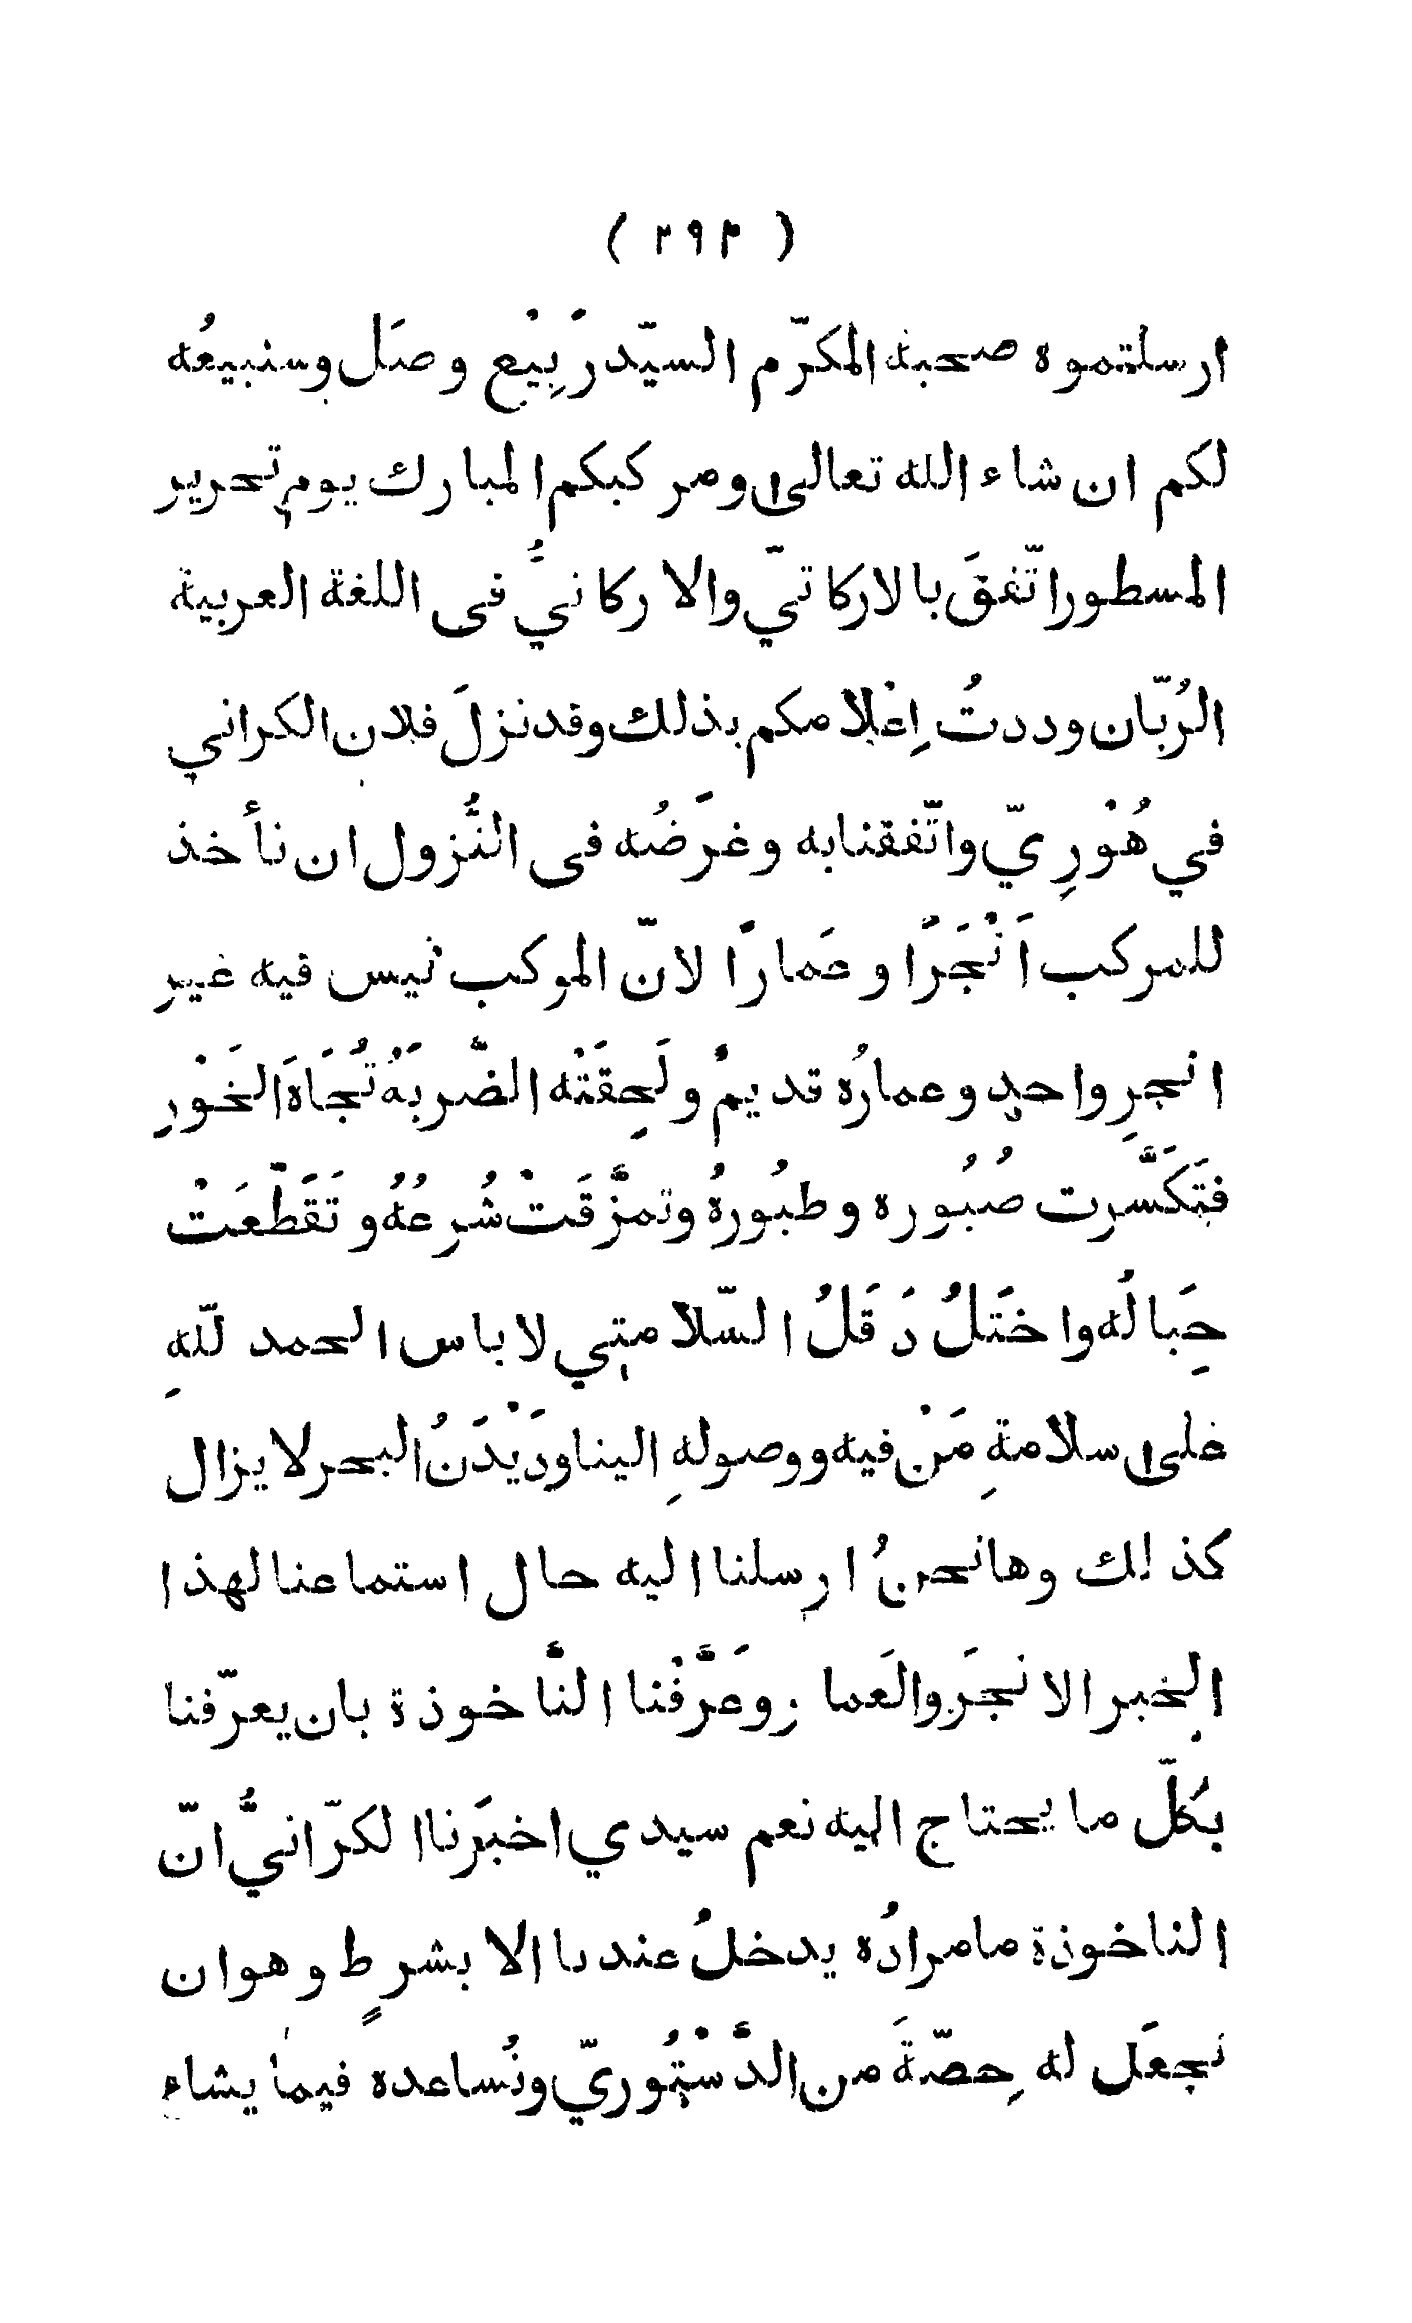 ( ٢٩٣ )
ارسلتموه صحبة المكرّم السيّد رَبِيْع وصَل وسنبيعُه
لكم ان شاء الله تعالىٰ ومركبكم المبارك يوم تحرير
المسطور اتّفقَ بالاركاتيّ والاركانيُّ فى اللغة العربية
الرُبّان وددتُ اِعْلامكم بذلك وقد نزلَ فلان الكراني
في هُوْرِيّ واتّفقنا به وغرَضُه فى النُّزول ان نأخذ
للمركب اَنْجَرًا وعَمارًا لانّ الموكب ليس فيه غير
انجرٍ واحدٍ وعمارُه قديمٌ ولَحِقَتْه الضَّربَةُ تُجَاهَ الخَوْرِ
فتَكَسَّرت صُبُوره وطبُورهُ وتمزَّقَتْ شُرعُهُ وتَقَطَّعَتْ
حِبَالُه واختَلُ دَقَلُ السّلامتي لا باس الحمد للّهِ
على سلامةِ مَنْ فيه ووصولهِ الينا ودَيْدَنُ البحر لا يزال
كذلك وها نحنُ ارسلنا اليه حال استماعنا لهذا
الخبر الانجَر والعَمار وعَرَّفْنا النَّاخوذة بان يعرّفنا
بكلّ ما يحتاج اليه نعم سيدي اخبَرنا الكرّانيُّ انّ
الناخوذة ما مرادُه يدخلُ عندنا الا بشرطٍ وهو ان
نجعَل له حِصّةَ من الدَّسْتُوريّ ونُساعده فيما يشاء